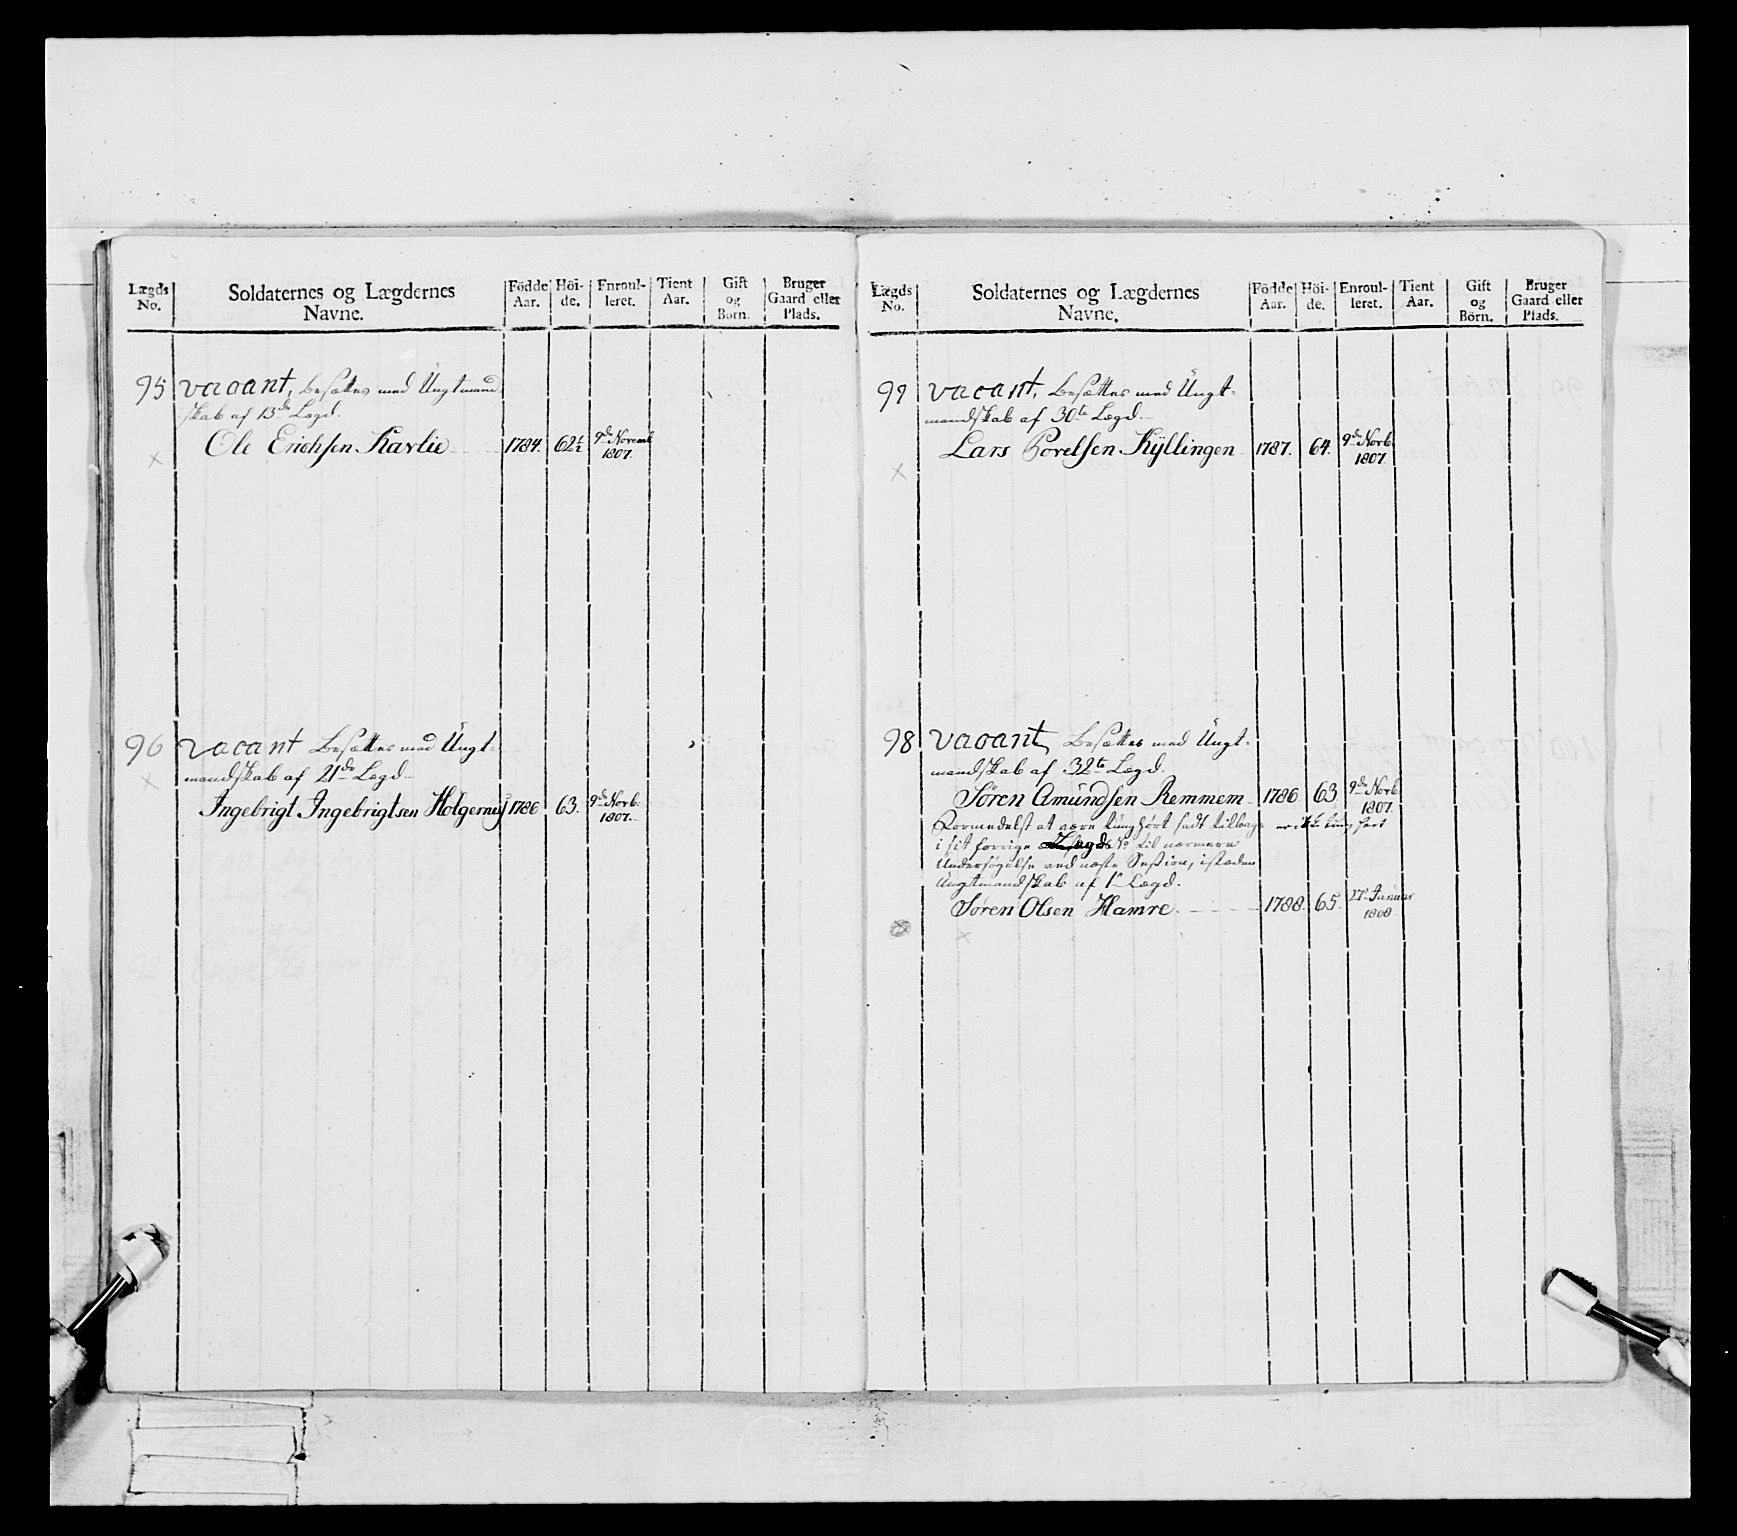 Lægds No. | Soldaternes og Lægdernes Navne. | Födde Aar. | Höi-de. | Enroul-leret. | Tient Aar. | Gift og Börn. | Bruger Gaard eller Plads.
95 vacant, besættes med Ungtmand
skab af 13de Lægd.
Ole Erichsen Kavlie 1784. 62½ 9de Novemb
1807.
96 vacant besættes med Ungt-
mandskab af 21de Lægd
Ingebrigt Ingebrigtsen Holgernes 1786 63. 9de Novb.
1807.
Lægds No. | Soldaternes og Lægdernes Navne. | Födde Aar. | Höi-de. | Enroul-leret. | Tient Aar. | Gift og Börn. | Bruger Gaard eller Plads.
97 vacant, besættes med Ungt-
mandskab af 30te Lægd.
Lars Povelsen Kÿllingen 1787. 64. 9de Novb.
1807.
98 vacant, besættes med Ungt-
mandskab af 32te Lægd.
Søren Amundsen Remmem 1786 63 9de Novb.
1807.
Formedelst at være tunghørt sadt tilbage
i sit forrige Lægds No til nærmere
Undersøgelse ved næste Session, isteden
Ungtmandskab af 1 Lægd.
Søren Olsen Hamre. 1788. 65. 27 Januar
1808